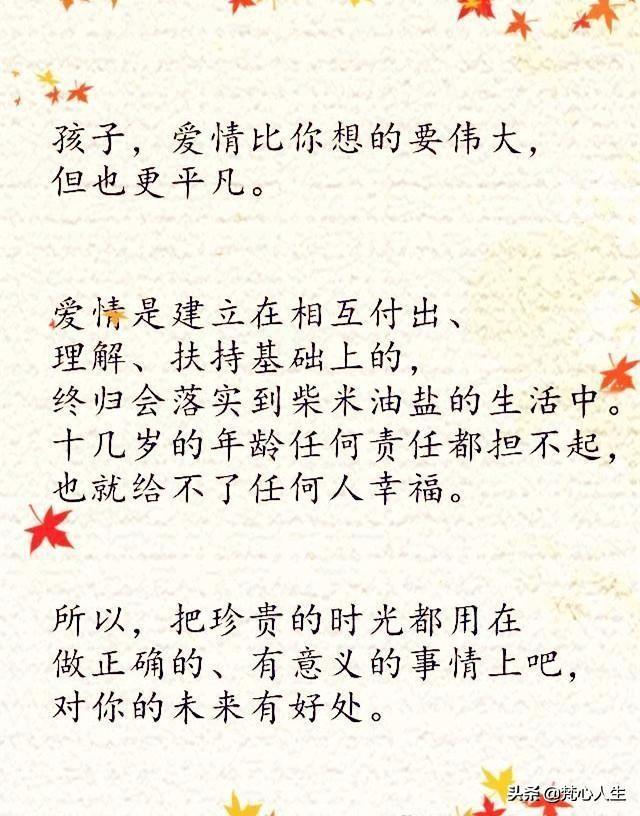 孩子，爱情比你想的要伟大，
但也更平凡。
爱情是建立在相互付出、
理解、扶持基础上的，
终归会落实到柴米油盐的生活中。
十几岁的年龄任何责任都担不起，
也就给不了任何人幸福。
所以，把珍贵的时光都用在
做正确的、有意义的事情上吧，
对你的未来有好处。
头条 @梵心人生